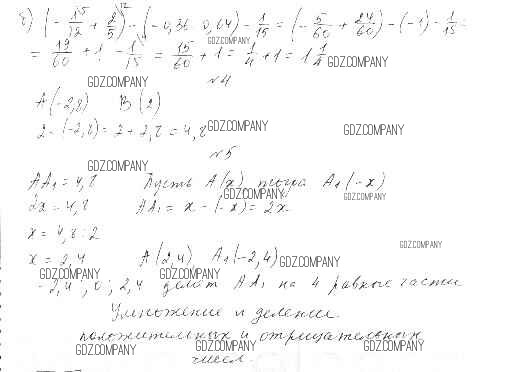 г) (-1/12 + 2/5) - (-0,36 - 0,64) - 1/15 = (-5/60 + 24/60) - (-1) - 1/15 =
GDZ.COMPANY
= 19/60 + 1 - 1/15 = 15/60 + 1 = 1/4 + 1 = 1 1/4
GDZ.COMPANY
GDZ.COMPANY
№4
A(-2,8) B(2)
2-(-2,8) = 2+2,8 = 4,8
GDZ.COMPANY GDZ.COMPANY
№5
GDZ.COMPANY
AA₁ = 4,8 Пусть A(x) тогда A₁(-x)
GDZ.COMPANY GDZ.COMPANY
2x = 4,8 AA₁ = x - (-x) = 2x
x = 4,8 : 2
GDZ.COMPANY
x = 2,4 A(2,4) A₁(-2,4)
GDZ.COMPANY GDZ.COMPANY GDZ.COMPANY
-2,4; 0; 2,4 делят AA₁ на 4 равные части
Умножение и деление
положительных и отрицательных
GDZ.COMPANY GDZ.COMPANY GDZ.COMPANY
чисел.